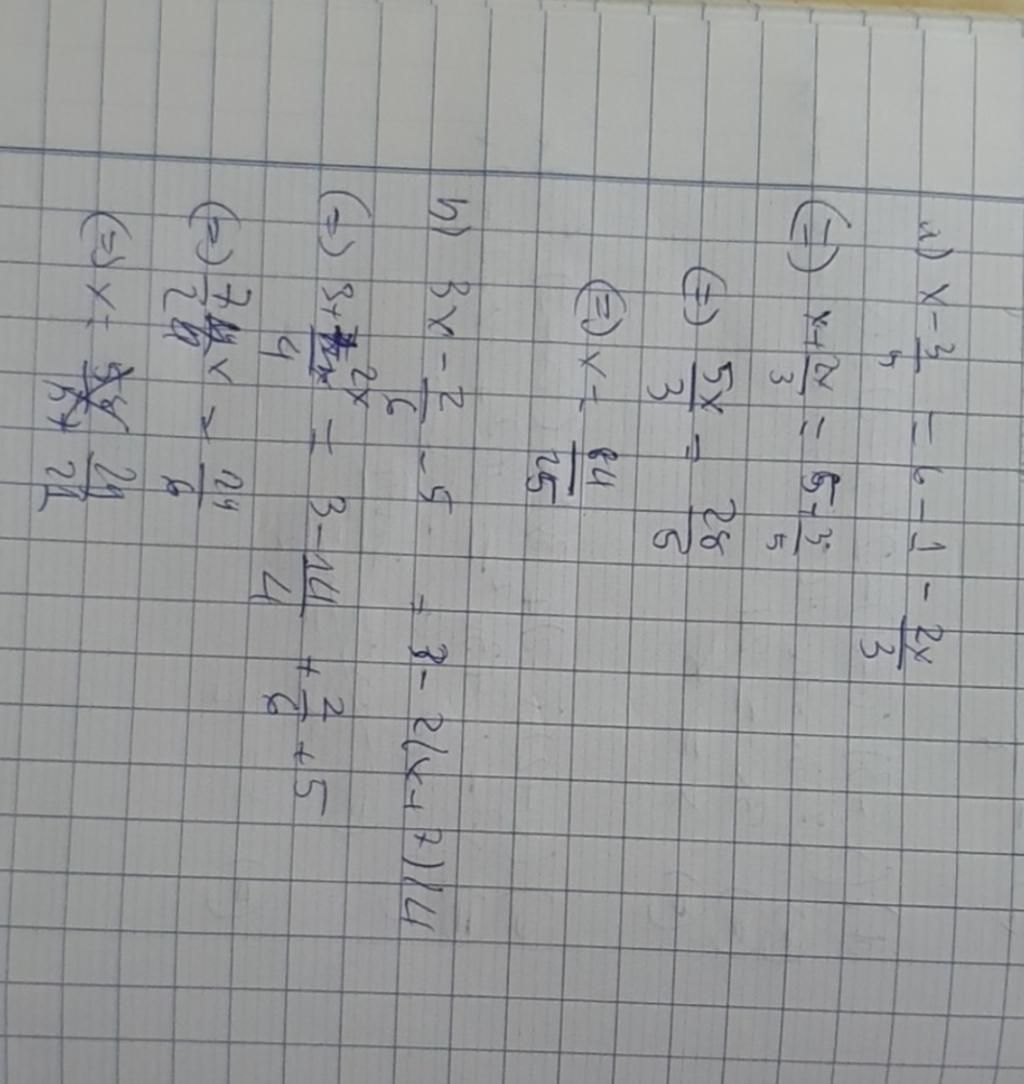 a) x - 3/5 = 6 - 1 - 2x/3
(=) x + 2x/3 = 5 + 3/5
(=) 5x/3 = 28/5
(=) x = 84/25
b) 3x - 2/6 - 5 = 3 - 2(x + 7)/4
(=) 3x + 2x/4 = 3 - 14/4 + 2/6 + 5
(=) 7/2 x = 29/6
(=) x = 29/21